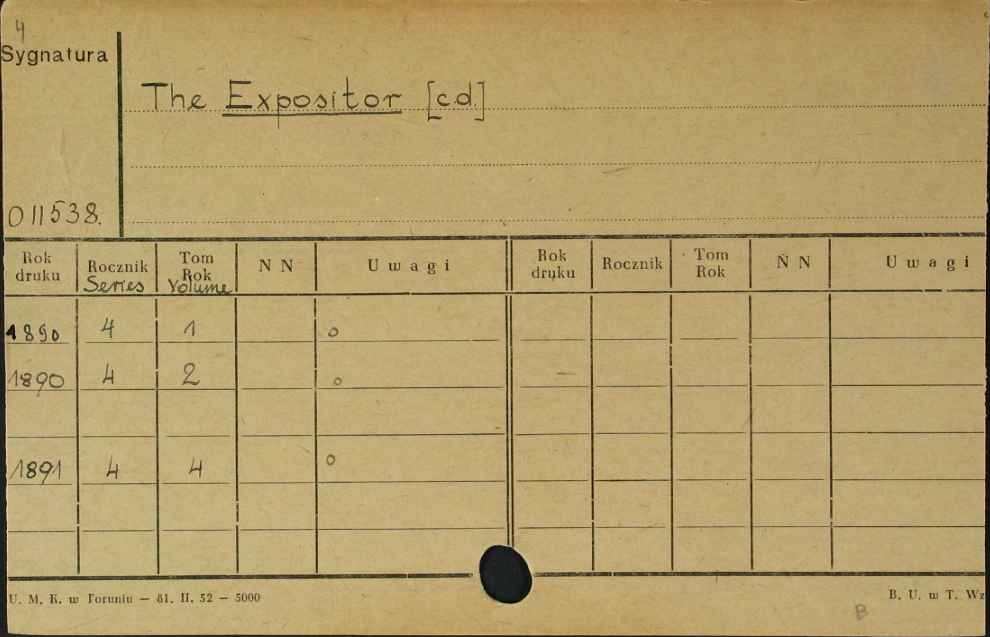 4
Sygnatura
The Expositor [c.d.]
011538.
Rok druku Rocznik Series Tom Rok Volume N N Uwagi Rok druku Rocznik Tom Rok N N Uwagi
1890 4 1 o
1890 4 2 o
1891 4 4 o
U. M. K. w Toruniu — 81. II. 52 — 5000 B. U. w T. Wz
B